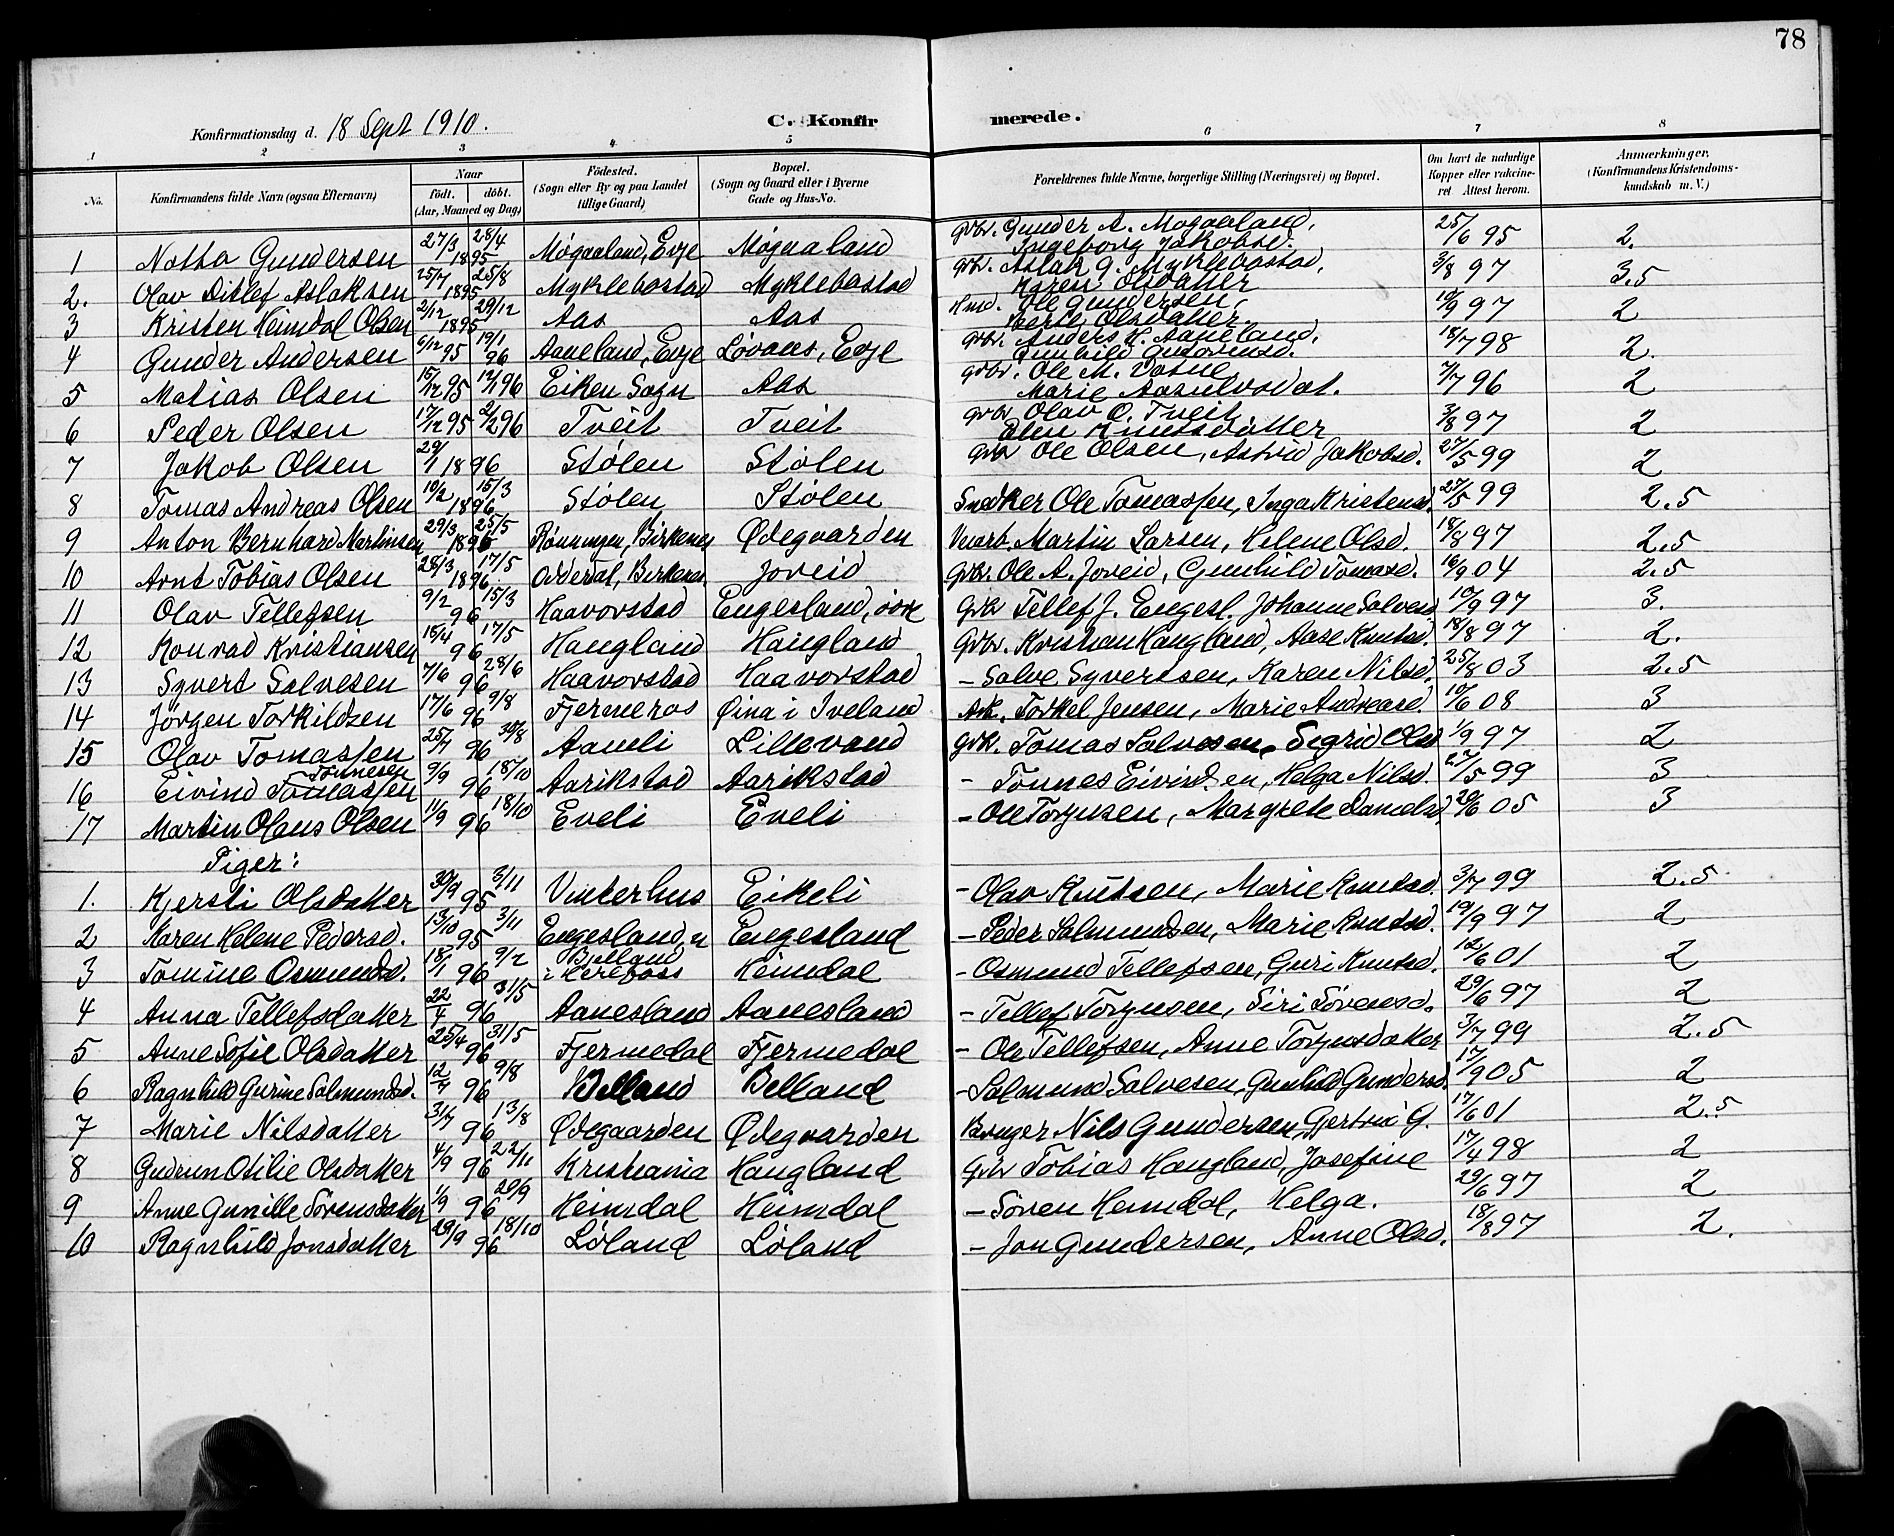 78
Konfirmationsdag d. 18 Sept 1910.
C. Konfirmerede.
1 2 3 4 5 6 7 8
No. | Konfirmandens fulde Navn (ogsaa Efternavn) | Naar födt. döbt. (Aar, Maaned og Dag) | Födested. (Sogn eller By og paa Landet tillige Gaard) | Bopæl. (Sogn og Gaard eller i Byerne Gade og Hus-No. | Forældrenes fulde Navne, borgerlige Stilling (Næringsvei) og Bopæl. | Om havt de naturlige Kopper eller vaccineret Attest herom. | Anmærkninger. (Konfirmandens Kristendomskundskab m. V.)
1 Notto Gundersen 27/3 28/4 1895 Møgaaland, Evje Møgaaland Grbr. Gunder A. Mogaaland, Ingeborg Jakobsd. 25/6 95 2.
2. Olav Ditlef Aslaksen 25/7 25/8 1895 Myklebostad Myklebostad Grbr. Aslak G. Myklebostad, Karen Olsdatter 3/8 97 3.5
3 Kristen Heimdal Olsen 2/12 29/12 1895 Aas Aas Hmd. Ole Gundersen, Berte Olsdatter. 10/9 97 2
4 Gunder Andersen 6/12 95 19/1 96 Aaneland, Evje Løvaas, Evje Grbr. Anders K. Aaneland, Gunhild 18/7 98 2.
5 Matias Olsen 15/12 95 12/1 96 Eiken Sogn Aas Grbr. Ole M. Vatne Marie Aasulvsdat. 7/7 96 2
6 Peder Olsen 17/12 95 2/2 96 Tveit Tveit Grbr Olav O. Tveit Elen Knutsdatter 3/8 97 2
7 Jakob Olsen 29/1 1896 Stølen Stølen Grbr Ole Olsen, Astrid Jakobsd. 27/5 99 2
8 Tomas Andreas Olsen 10/2 15/3 1896 Stølen Stølen Snedker Ole Tomassen, Inga Kristensd. 27/5 99 2.5
9 Anton Bernhard Martinsen 29/3 25/5 1896 Rønningen, Birkenes Ødegaarden Martin Larsen, Helene Olsd. 18/8 97 2.5
10 Arnt Tobias Olsen 28/3 17/5 1896 Oddersl, Birkenes Joveid Grbr. Ole A. Joveid, Gunhild Tomasd. 16/9 04 2.5
11 Olav Tellefsen 9/2 15/3 96 Haavorstad Engesland, övre Grbr Tellef J. Engesl. Johanne Salvesd 10/9 97 3.
12 Konrad Kristiansen 15/4 17/5 96 Haugland Haugland Grbr. Kristian Haugland, Aase Knutsd. 18/8 97 2.
13 Syvert Salvesen 7/6 28/6 96 Haavorstad Haavorstad - Salve Syvertsen, Karen Nilsd. 25/8 03 2.5
14 Jörgen Torkildsen 17/6 9/8 96 Fjermeros Øina i Iveland Arb. Torkel Jensen, Marie Andreasd. 10/6 08 3
15 Olav Tomassen 25/7 30/8 96 Aamli Lillevand Grbr. Tomas Salvesen, Segrid Olsd 1/9 97 2
16 Eivind Tomassen Tönnesen 9/9 18/10 96 Aarikstad Aarikstad - Tönnes Eivindsen, Helga Nilsd. 27/5 99 3
17 Martin Olaus Olsen 11/9 18/10 96 Eveli Eveli - Ole Torjusen, Margrete Danielsd. 20/6 05 3
Piger:
1. Kjersti Olsdatter 30/9 3/11 95 Vinterhus Eikeli - Olav Knutsen, Marie Knutsd. 3/7 99 2.5
2 Maren Helene Pedersd. 13/10 3/11 95 Engesland, n Engesland - Peder Salmundsen, Marie Knutsd. 19/9 97 2
3 Tomine Osmundsd. 18/1 9/2 96 Bjelland i Herefoss Heimdal - Osmund Tellefsen, Guri Knutsd. 12/6 01 2
4 Anna Tellefsdatter 22/4 31/5 96 Aanesland Aanesland - Tellef Torjusen, Siri Sörensd. 29/6 97 2
5 Anne Sofie Olsdatter 25/4 31/5 96 Fjermedal Fjermedal - Ole Tellefsen, Anne Torjusdatter 3/7 99 2.5
6 Ragnhild Gurine Salmundsd. 12/7 9/8 96 Belland Belland - Salmund Salvesen, Gunhild Gundersd. 17/9 05 2
7 Marie Nilsdatter 31/7 13/8 96 Ødegaarden Ødegaarden Bruger Nils Gundersen, Gjertrud G. 17/6 01 2.5
8 Gudrun Otilie Olsdatter 4/9 22/11 96 Kristiania Haugland Grbr Tobias Haugland, Josefine 17/4 98 2
9 Anne Gunille Sörensdatter 1/9 20/9 96 Heimdal Heimdal - Sören Heimdal, Helga. 29/6 97 2
10 Ragnhild Jonsdatter 29/9 18/10 96 Løland Løland - Jon Gundersen, Anne Olsd. 18/8 97 2.